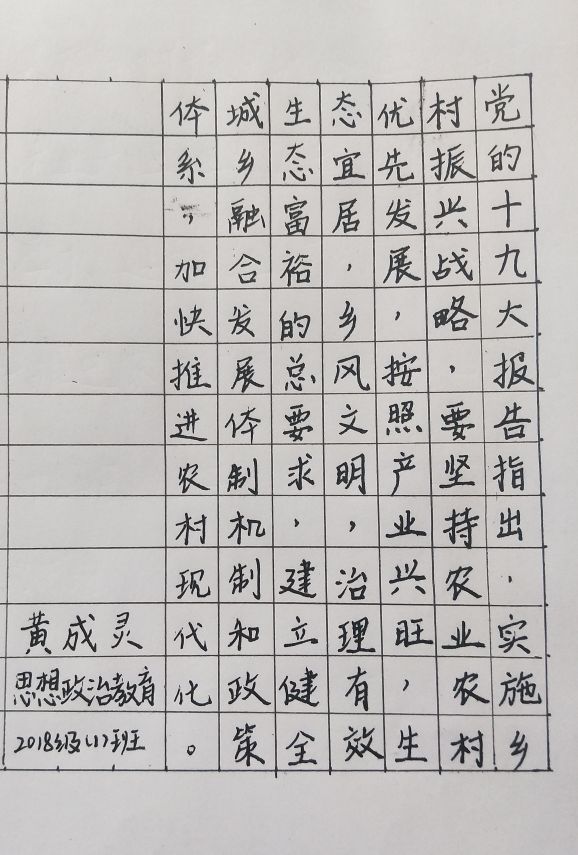 党的十九大报告指出，实施乡
村振兴战略，要坚持农业农村
优先发展，按照产业兴旺，生
态宜居，乡风文明，治理有效
生态富裕的总要求，建立健全
城乡融合发展体制机制和政策
体系，加快推进农村现代化。
黄成灵
思想政治教育
2018级(1)班